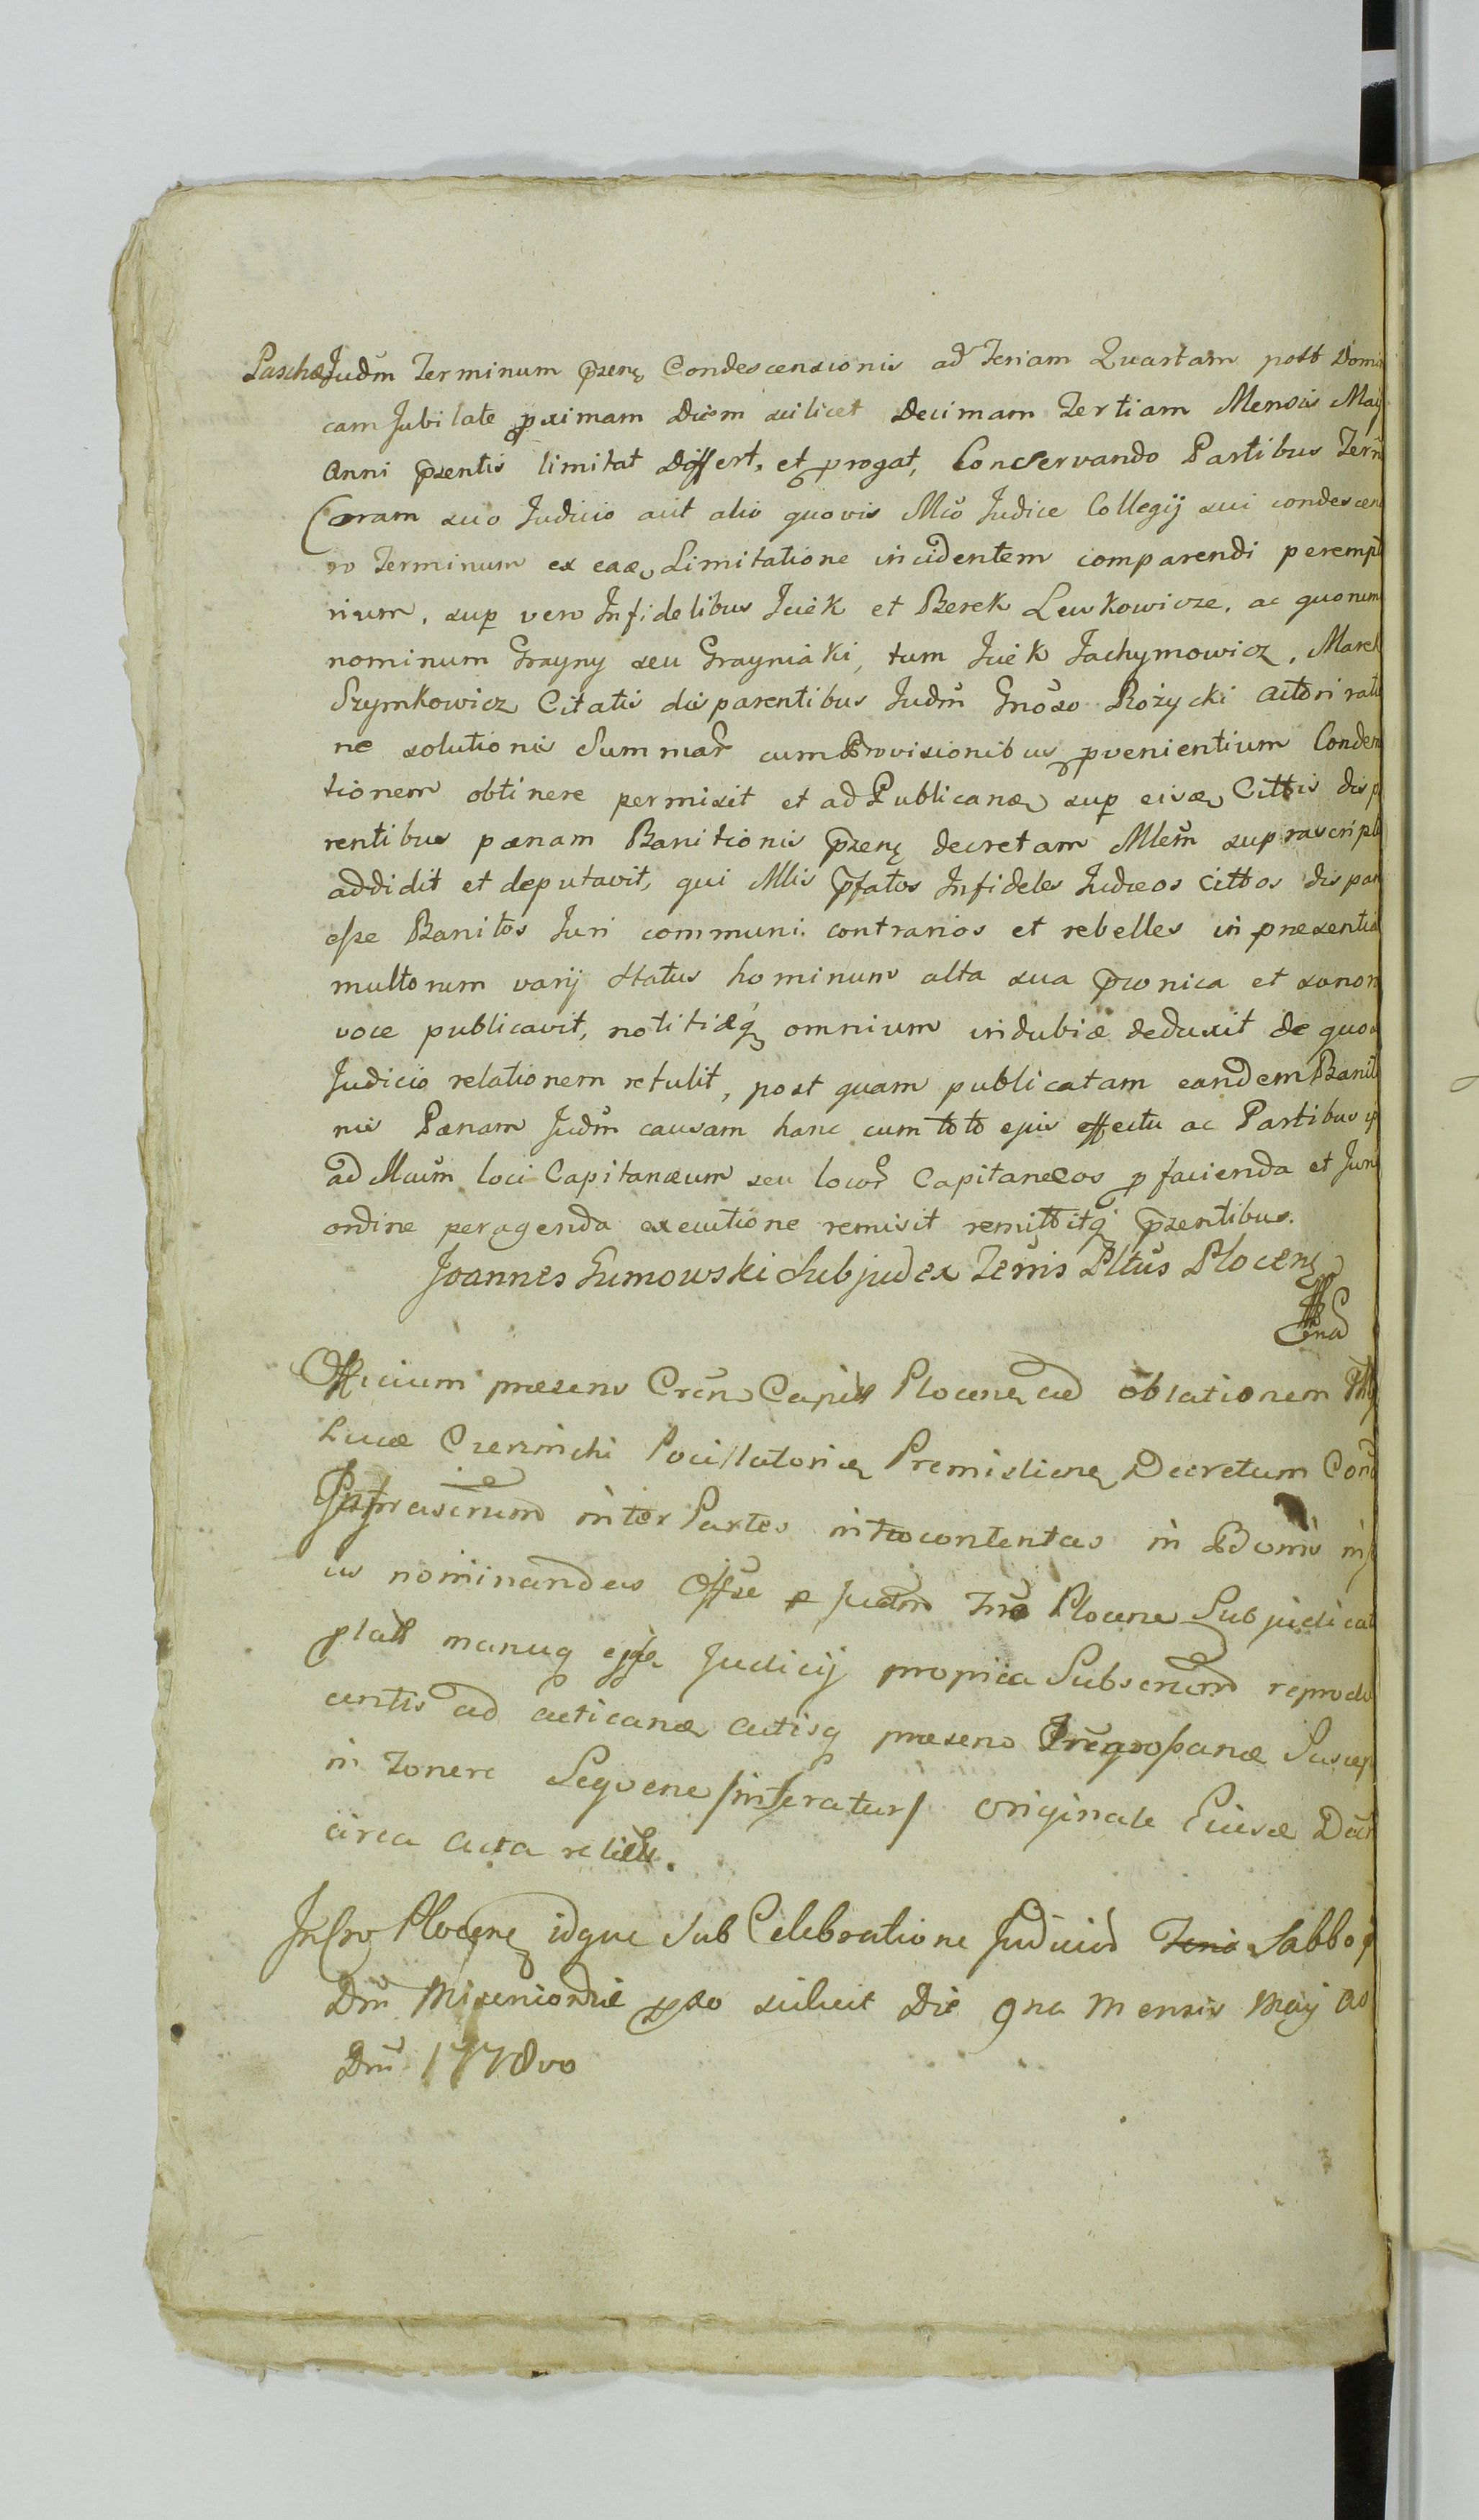 Paschæ Judm Terminum p̄zenę Condescensionis ad Feriam Quartam post Domi
cam Jubilate pximam Diem scilicet Decimam Tertiam Mensis Maij
Anni p̄zentis limitat Differt, et progat, Conservando Partibus Term
Coram suo Judicio aut alio quovis Mco Judice Collegij sui condescen
ro Terminum ex eaæ Limitatione incidentem comparendi perempt
rium, sup vero Infidelibus Jcek et Berek Lewkowicze, ac quorum
nominum Grayny seu Grayniaki, tum Jcek Jachymowicz, Marek
Szymkowicz Citatis disparentibus Judm Gnoso Rożycki actori ratio
ne solutionis Summar cum Provisionibus pvenientium Condem
tionem obtinere permisit et ad Publicanæ sup eisæ Cittis disp
rentibus pænam Banitionis p̄zenę decretam Mlem suprascript
addidit et deputavit, qui Mlis p̄fatos Infideles Judæos Cittos dispar
esse Banitos Juri communi contrarios et rebelles in præsentia
multorum varij status hominum alta sua p̄conica et sonor
voce publicavit, notitiæq omnium indubiæ deduxit de quo
Judicio relationem retulit, post quam publicatam eandem Banit
nis Pænam Judm causam hanc cum toto ejus effectu ac Partibus ip
ad Mcum loci Capitanæum seu locor Capitanæos p facienda et Juri
ordine peragenda executione remisit remittitq p̄zentibus.
Joannes Sumowski Subjudex Terris Pltus Plocenę
Officium præsens Cren Capitt Plocenę ad oblationem
Lucæ Czerminski Pocillatoris Premislienę Decretum Cond
inter Partes introcontentas in Bonis inf
us nominandas Offse p Judm Trre Plocene Subjudicat
platt manuq ejqe Judicij propria Subscrum reprodu
centis ad acticanæ actisq præsens Ingrossanæ Suscep
in Tenore Sequene /inseratur/ originale Eiusæ Dect
circa acta relictu.
In Cro Plocenę idque Sub Celebratione Judicior Sabbo p
Dni Misericordiæ pxo scilicet Die 9na Mensis Maij Ao
Dni 1778vo